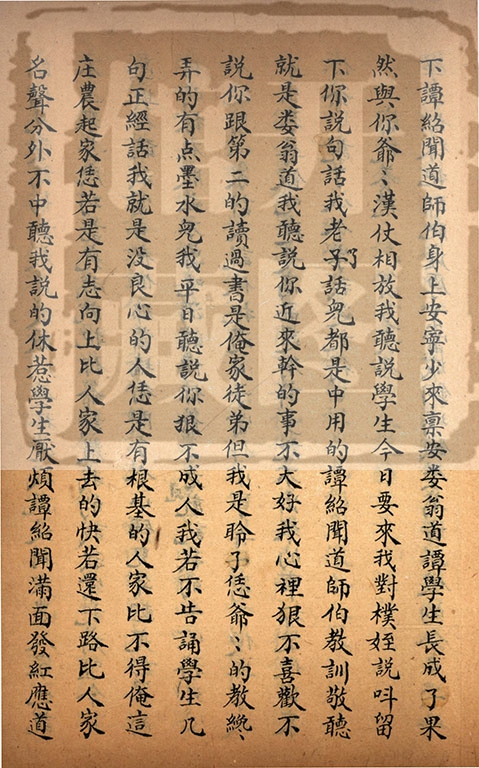 下譚紹聞道師伯身上安寧少來禀安娄翁道譚學生長成了果
然與你爺〻漢仗相放我聽説學生今日要來我對樸姪説呌留
下你説句話我老了的話兒都是中用的譚紹聞道師伯教訓敬聽
就是娄翁道我聽説你近來幹的事不大好我心裡狠不喜歡不
説你跟第二的讀過書是俺家徒弟但我是聆了恁爺〻的教纔〻
弄的有点墨水兒我平日聽説你狠不成人我若不告誦學生几
句正經話我就是没良心的人恁是有根基的人家比不得俺這
庄農起家恁若是有志向上比人家上去的快若還下路比人家
名聲分外不中聽我説的休惹學生厭煩譚紹聞滿面發紅應道